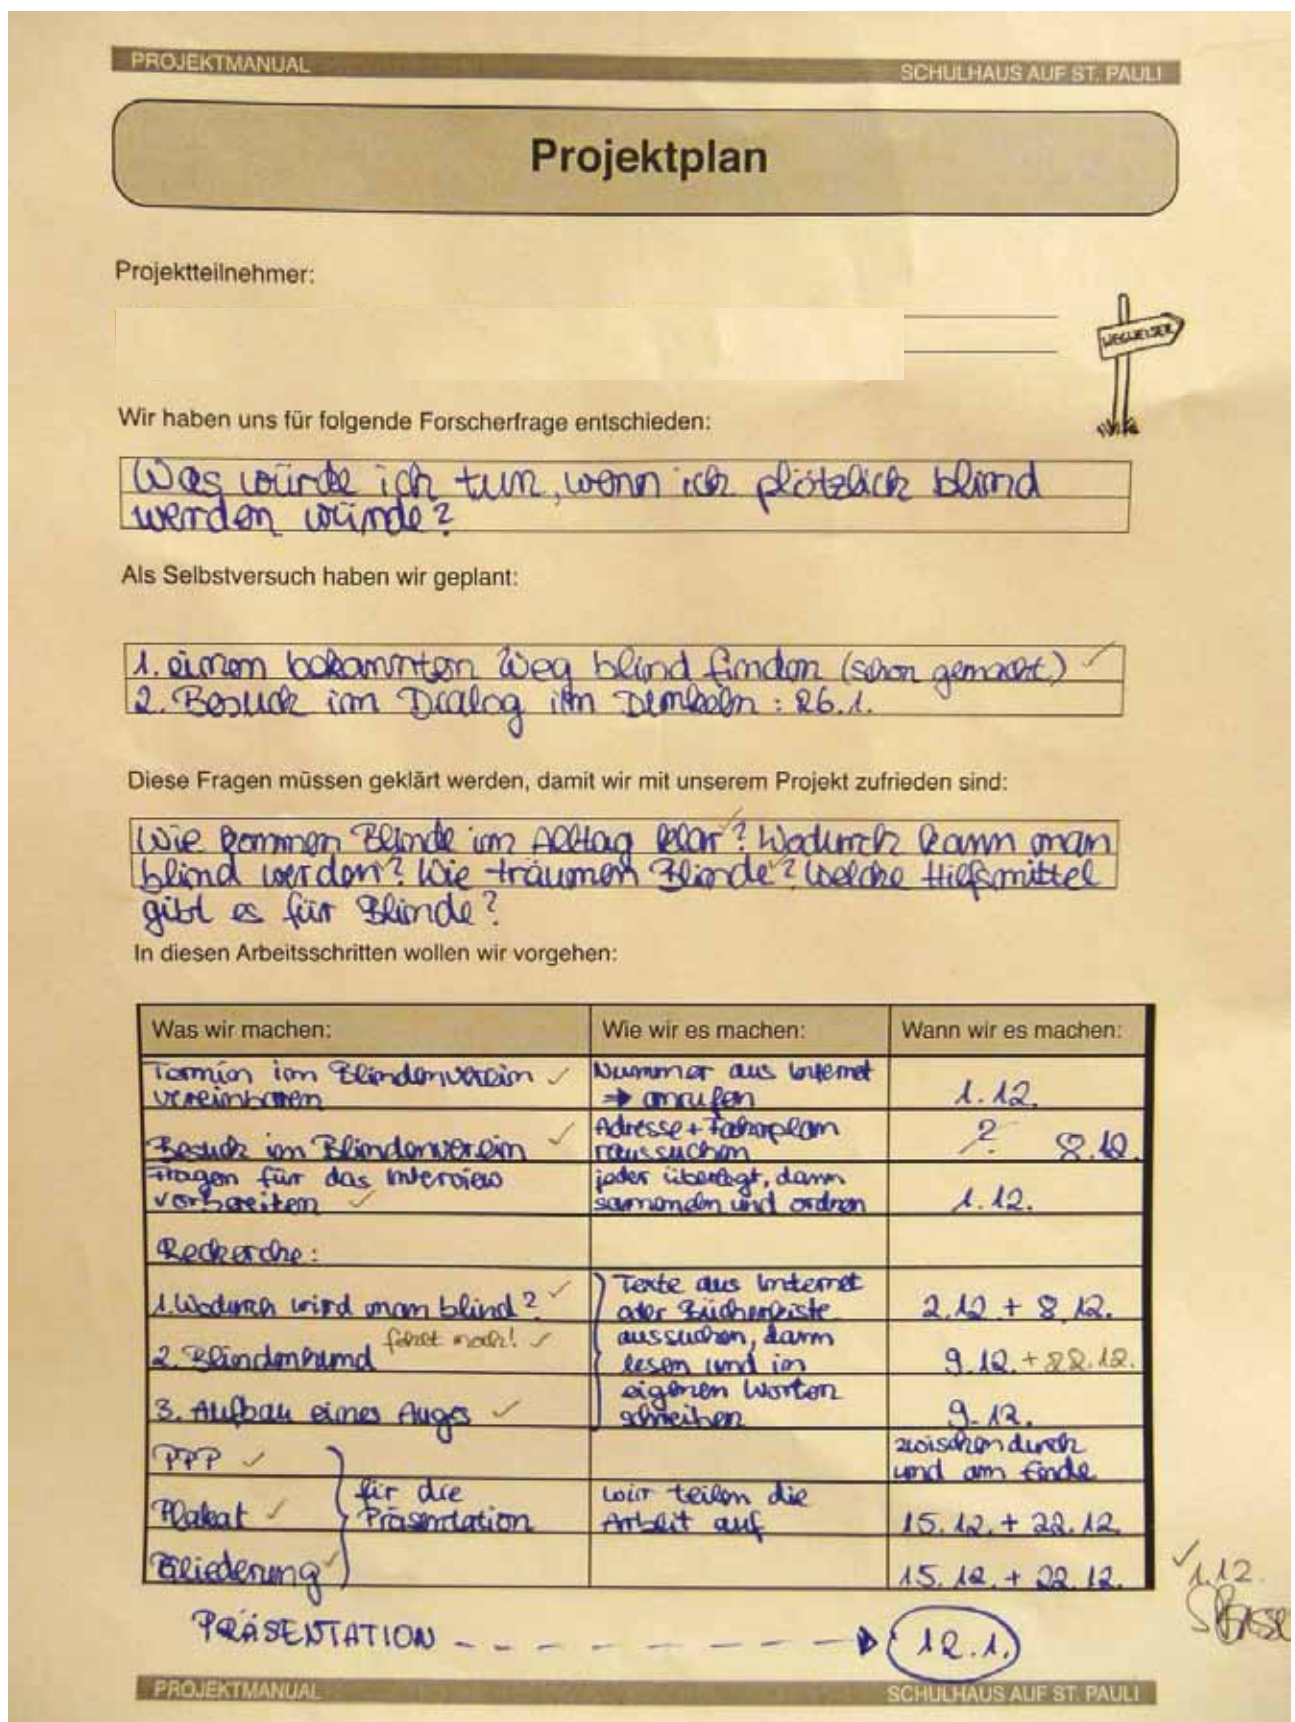 PROJEKTMANUAL SCHULHAUS AUF ST. PAULI
Projektplan
Projektteilnehmer:
WEGWEISER
Wir haben uns für folgende Forscherfrage entschieden:
Was würde ich tun, wenn ich plötzlich blind
werden würde?
Als Selbstversuch haben wir geplant:
1. einen bekannten Weg blind finden (schon gemacht) ✓
2. Besuch im Dialog im Dunkeln : 26.1.
Diese Fragen müssen geklärt werden, damit wir mit unserem Projekt zufrieden sind:
Wie kommen Blinde im Alltag klar? Wodurch kann man
blind werden? Wie träumen Blinde? Welche Hilfsmittel
gibt es für Blinde?
In diesen Arbeitsschritten wollen wir vorgehen:
Was wir machen: Wie wir es machen: Wann wir es machen:
Termin im Blindenverein ✓ Nummer aus Internet
vereinbaren → anrufen 1.12.
Besuch im Blindenverein ✓ Adresse + Fahrplan
raussuchen ? 8.12.
Fragen für das Interview jeder überlegt, dann
vorbereiten ✓ sammeln und ordnen 1.12.
Recherche:
1. Wodurch wird man blind? ✓ Texte aus Internet
oder Bücherkiste 2.12 + 8.12.
2. Blindenhund fehlt noch! ✓ aussuchen, dann
lesen und in 9.12. + 22.12.
3. Aufbau eines Auges ✓ eigenen Worten
schreiben 9.12.
PPP ✓ zwischendurch
und am Ende
Plakat ✓ für die Präsentation wir teilen die
Arbeit auf 15.12. + 22.12.
Gliederung ✓ 15.12. + 22.12.
✓ 1.12.
PRÄSENTATION 12.1.
PROJEKTMANUAL SCHULHAUS AUF ST. PAULI